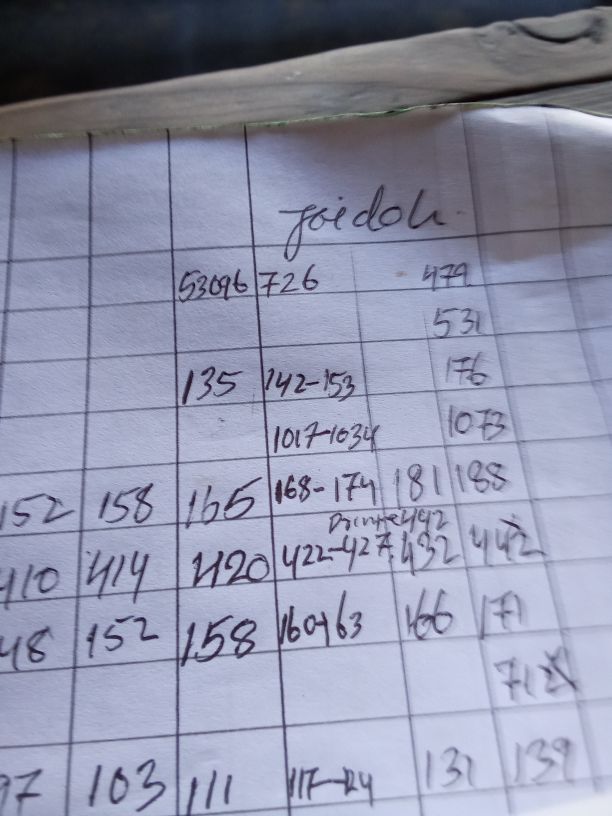 joidoh.
53096 726 479
531
135 142-153 176
1017-1034 1073
152 158 165 168-174 181 188
442
410 414 420 422-427 432 442
48 152 158 160-163 166 171
712
97 103 111 117-124 131 139